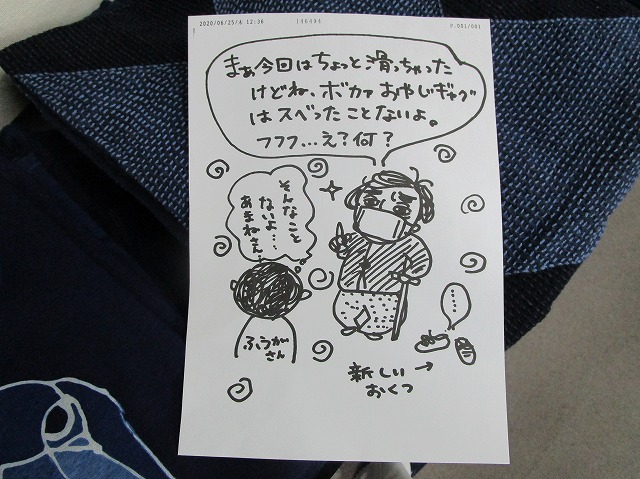 2020/06/25/木 12:36
146494
P.001/001
まぁ今回はちょっと滑っちゃった
けどね、ボカァ おやじギャグ
はスベったことないよ。
フフフ…え?何?
そんなこと
ないよ…
あまねさん…
ふうがさん
……
新しい→
おくつ